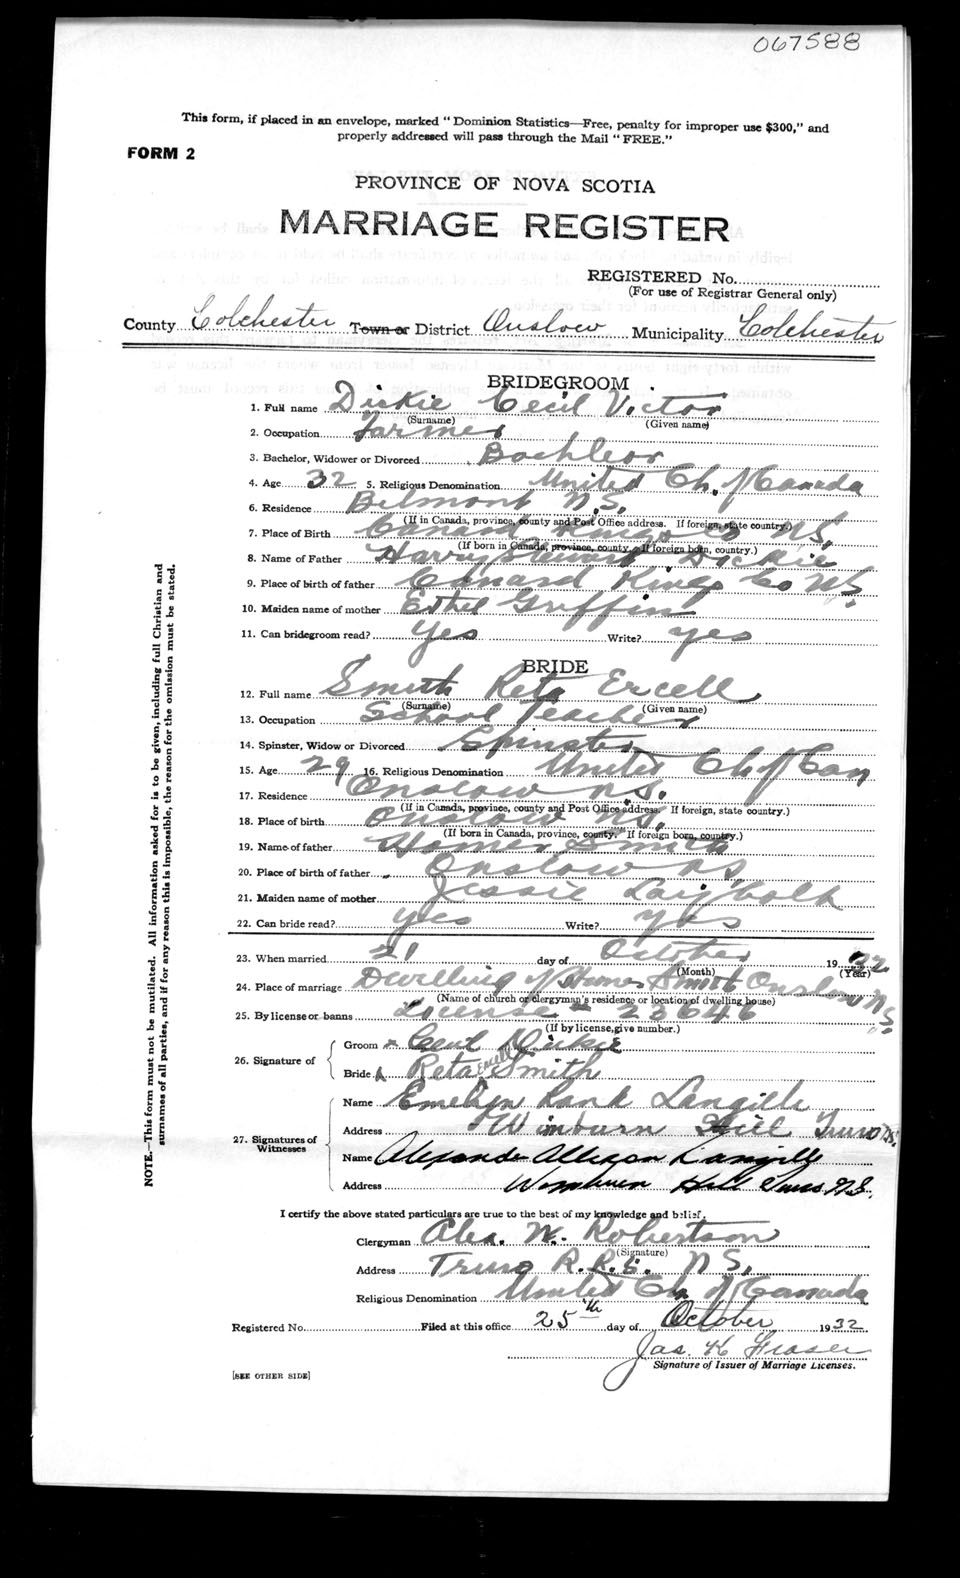 067588
This form, if placed in an envelope, marked "Dominion Statistics—Free, penalty for improper use $300," and
properly addressed will pass through the Mail "FREE."
FORM 2
PROVINCE OF NOVA SCOTIA
MARRIAGE REGISTER
REGISTERED No.
(For use of Registrar General only)
County Colchester Town or District Onslow Municipality Colchester
BRIDEGROOM
1. Full name Dickie Cecil Victor
(Surname) (Given name)
2. Occupation Farmer
3. Bachelor, Widower or Divorced Bachleor
4. Age 32 5. Religious Denomination United Ch. of Canada
6. Residence Belmont N.S.
(If in Canada, province, county and Post Office address. If foreign, state country.)
7. Place of Birth Canard Kings Co NS.
(If born in Canada, province, county. If foreign born, country.)
8. Name of Father Harry Dickie
9. Place of birth of father Canard Kings Co NS.
10. Maiden name of mother Ethel Griffin
11. Can bridegroom read? Yes Write? yes
BRIDE
12. Full name Smith Reta Ercell
(Surname) (Given name)
13. Occupation School Teacher
14. Spinster, Widow or Divorced Spinster
15. Age 29 16. Religious Denomination United Ch of Can
17. Residence Onslow N.S.
(If in Canada, province, county and Post Office address. If foreign, state country.)
18. Place of birth Onslow N.S.
(If born in Canada, province, county. If foreign born, country.)
19. Name of father Homer Smith
20. Place of birth of father Onslow NS
21. Maiden name of mother Jessie
22. Can bride read? yes Write? yes
23. When married 21 day of October 1932
(Month) (Year)
24. Place of marriage Dwelling of Homer Smith Onslow N.S.
(Name of church or clergyman's residence or location of dwelling house)
25. By license or banns License - 23646
(If by license, give number.)
26. Signature of
Groom x Cecil Dickie
Bride x Reta Ercell Smith
27. Signatures of Witnesses
Name Emelyn Rank Langille
Address Wimburn Hill Truro NS.
Name Alexander Allison Langille
Address Wimburn Hill Truro N.S.
I certify the above stated particulars are true to the best of my knowledge and belief.
Clergyman Alex. W. Robertson
(Signature)
Address Truro R.R.5. NS.
Religious Denomination United Ch of Canada
Registered No. Filed at this office 25th day of October 1932
Jas. K Fraser
Signature of Issuer of Marriage Licenses.
[SEE OTHER SIDE]
NOTE.—This form must not be mutilated. All information asked for is to be given, including full Christian and
surnames of all parties, and if for any reason this is impossible, the reason for the omission must be stated.